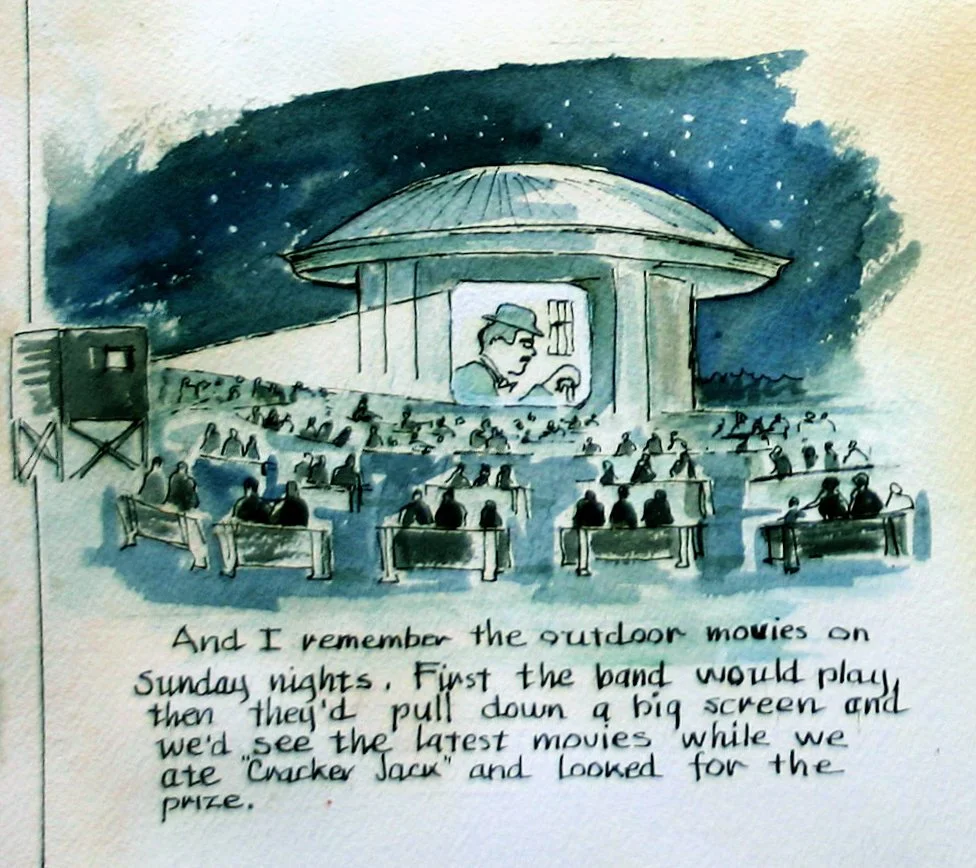 And I remember the outdoor movies on
Sunday nights. First the band would play,
then they'd pull down a big screen and
we'd see the latest movies while we
ate "Cracker Jack" and looked for the
prize.